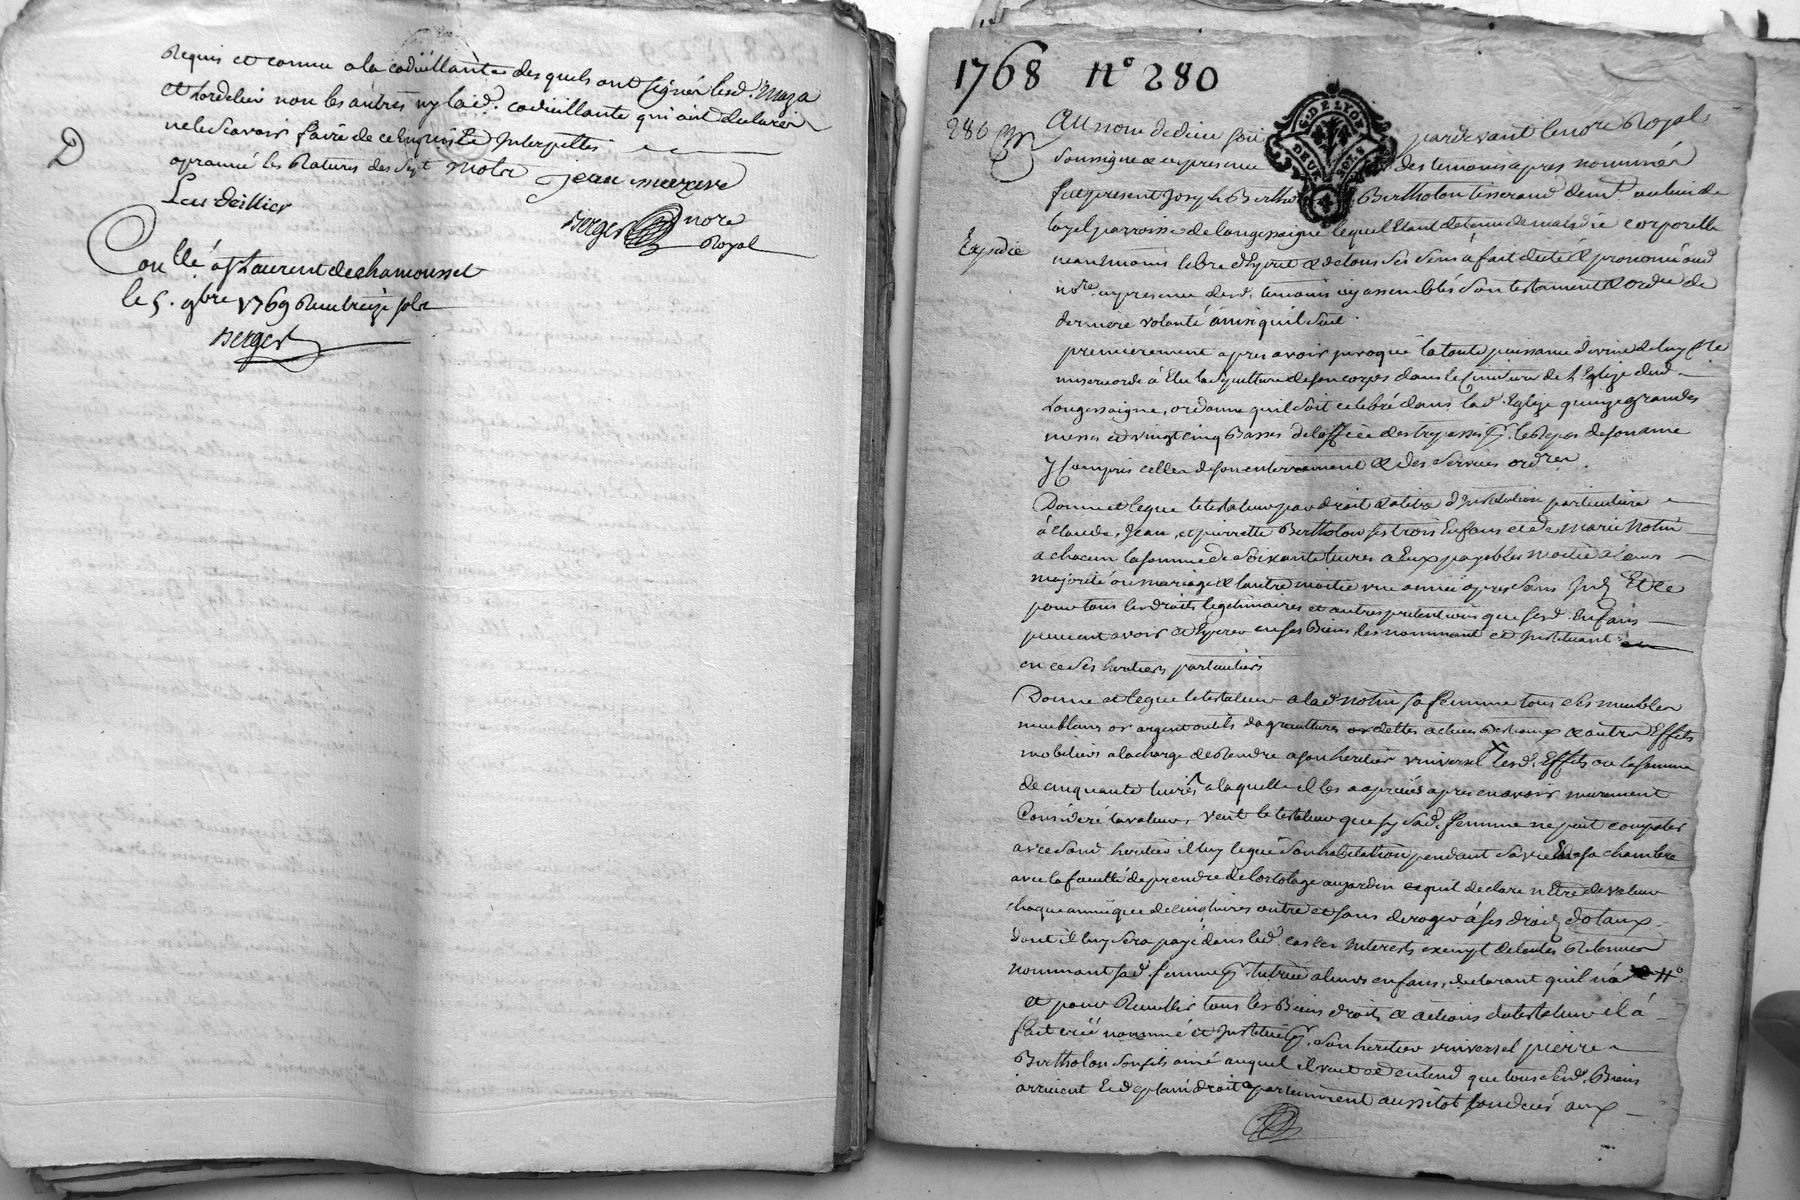 Requis et connu a la codicillante des quels ont signés lesd. Maza
et Cordelier non les autres ny lad. codicillante qui ont declarés
ne le scavoir faire de ce enquis et Interpellés
D
aprouvé les Ratures des sept mots jean mazas
Cordellier
Berger nore
Royal
Conllé a St Laurent de chamousset
le 5. 9bre 1769 Reçu treize sols
Berger
1768 n° 280
G. DE LYON
DEUX SOLS
4
280
Au nom de dieu soit pardevant le nore Royal
soussigné & en presence des temoins apres nommés
fut present Joseph Bertho Bertholon tisserand demt. au lieu de
tazel parroisse de longessaigne lequel Etant detenu de maladie corporelle
Expedié
neanmoins libre d'Esprit & de tous ses sens a fait dicté & prononcé aud
nore. en presence desd. temoins icy assemblés son testament & ordre de
derniere volonté ainsi quil suit.
premierement apres avoir invoqué la toute puissance divine de luy faire
misericorde à Elu la sepulture de son corps dans le Cimetiere de l'Eglize dud
Longessaigne, ordonne quil soit celebré dans lad. Eglize quinze grandes
messes et vingt cinq Basses de loffice des trepassés p. le Repos de son ame
y Compris celles de son enterrement & des services ordres.
Donne et legue le testateur par droit & titre d'Institution particuliere
à Claude, Jean, et pierrette Bertholon ses trois Enfans et de Marie Notin
a chacun la somme de soixante livres a Eux payables moitié a leurs
majorité ou mariage & l'autre moitié une année apres sans Int. Et ce
pour tous les droits legitimaires et autres pretentions que sesd. Enfans
peuvent avoir & Esperer en ses Biens, les nommant et Instituant
en ce ses heritiers particuliers
Donne et legue le testateur a lad Notin sa femme tous ses meubles
meublans or argent outils dagriculture dettes actives Bestiaux & autres Effets
mobiliers a la charge de Rendre a son heritier universel lesd. Effets ou la somme
de cinquante livres a laquelle il les a apreciés apres en avoir murement
Consideré la valeur, veut le testateur que sy sad. femme ne peut compatir
avec sond. heritier il luy legue son habitation pendant sa vie sa chambre
avec la faculté de prendre de lortolage au jardin ce quil declare n'Etre de valeur
chaque année que de cinq livres outre et sans deroger à ses droits dotaux
dont il luy sera payé dans led. cas les Interests exempt de toutes Retenues
nommant sad. femme p. tutrice a leurs enfans, declarant quil n'a
et pour Recueillir tous les Biens droits & actions du testateur il à
fait créé nommé et Institué p. son heritier universel pierre
Bertholon son fils ainé auquel il veut et entend que tous sesd. Biens
arrivent Et de plain droit apartiennent aussitot son deces aux